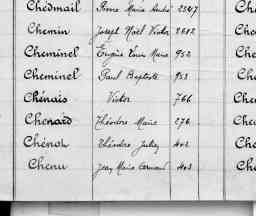 Chedmail Pierre Marie André 2247
Chemin Joseph Noël Victor 2882
Cheminel Eugène Louis Marie 952
Cheminel Paul Baptiste 953
Chénais Victor 766
Chenard Théodore Marie 276
Chénot Théodore Julien 402
Chenu Jean Marie 403